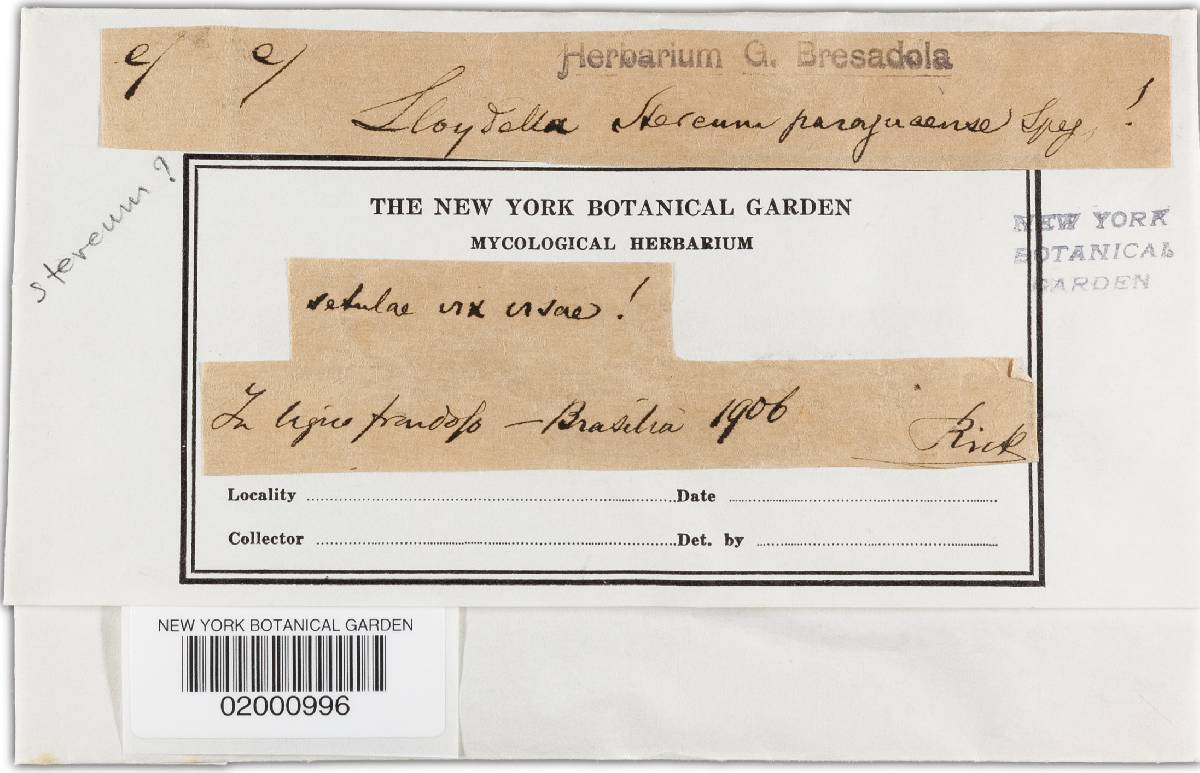 Herbarium G. Bresadola
Lloydella Stereum paraguaense Speg. !
Stereum ?
THE NEW YORK BOTANICAL GARDEN
MYCOLOGICAL HERBARIUM
NEW YORK
BOTANICAL
GARDEN
setulae vix visae !
In ligno frondoso — Brasilia 1906
Rick
Locality
Date
Collector
Det. by
NEW YORK BOTANICAL GARDEN
02000996